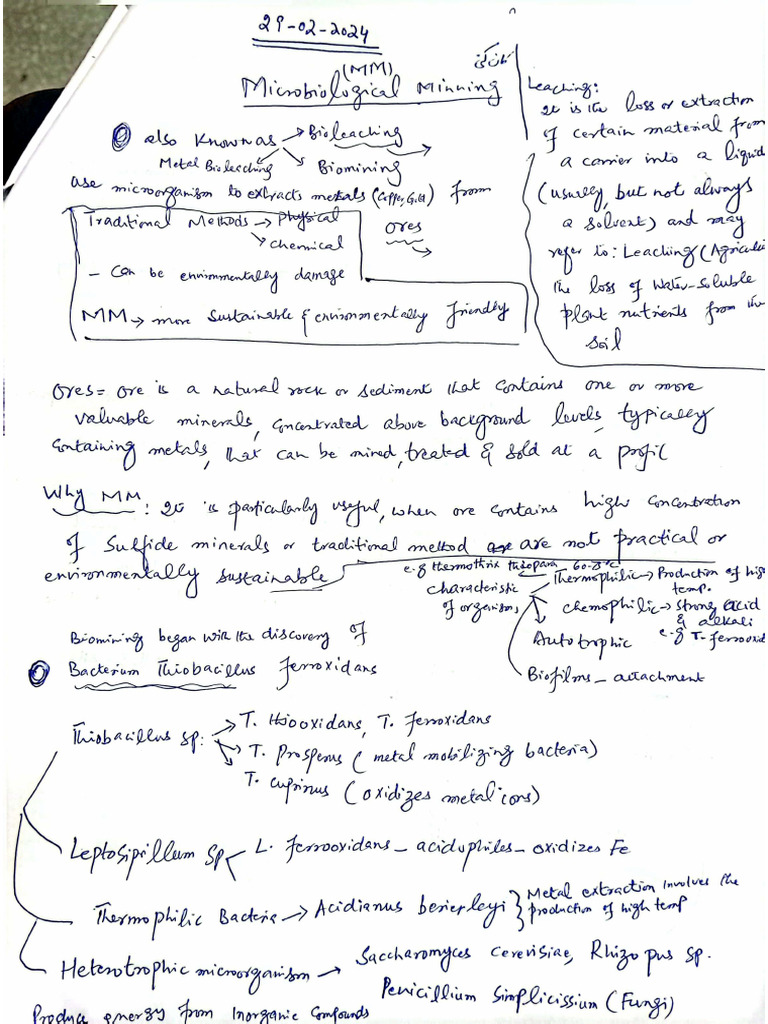 29-02-2024
(MM)
Microbiological Minning
کان کنی
Leaching:
It is the loss or extraction
of certain material from
a carrier into a liquid
(usually, but not always
a solvent) and may
refer to: Leaching (Agricultu
the loss of water-soluble
plant nutrients from the
soil
also known as → Bioleaching
Metal Bioleaching
Biomining
use microorganism to extracts metals (Copper, Gold) from
ores
Traditional Methods → Physical
→ chemical
- Can be environmentally damage
MM → more sustainable & environmentally friendly
Ores = Ore is a natural rock or sediment that contains one or more
valuable minerals, concentrated above background levels, typically
containing metals, that can be mined, treated & sold at a profit
Why MM: It is particularly useful, when ore contains high concentration
of Sulfide minerals or traditional method are are not practical or
environmentally sustainable
characteristic
of organism,
e.g thermothrix thiopara
60-75°C
Thermophilic → Production of high
temp.
chemophilic → strong acid
& alkali
e.g T-ferrooxid
Autotrophic
Biofilms - attachment
Biomining began with the discovery of
Bacterium Thiobacillus ferroxidans
Thiobacillus sp: → T. thiooxidans, T. ferroxidans
→ T. prosperus (metal mobilizing bacteria)
→ T. cuprinus (oxidizes metal ions)
Leptosipillum sp L. ferrooxidans - acidophiles - oxidizes Fe
Thermophilic Bacteria → Acidianus berierleyi } Metal extraction involves the
production of high temp
Heterotrophic microorganism → Saccharomyces cerevisiae, Rhizopus sp.
Penicillium simplicissium (Fungi)
Produce energy from Inorganic compounds